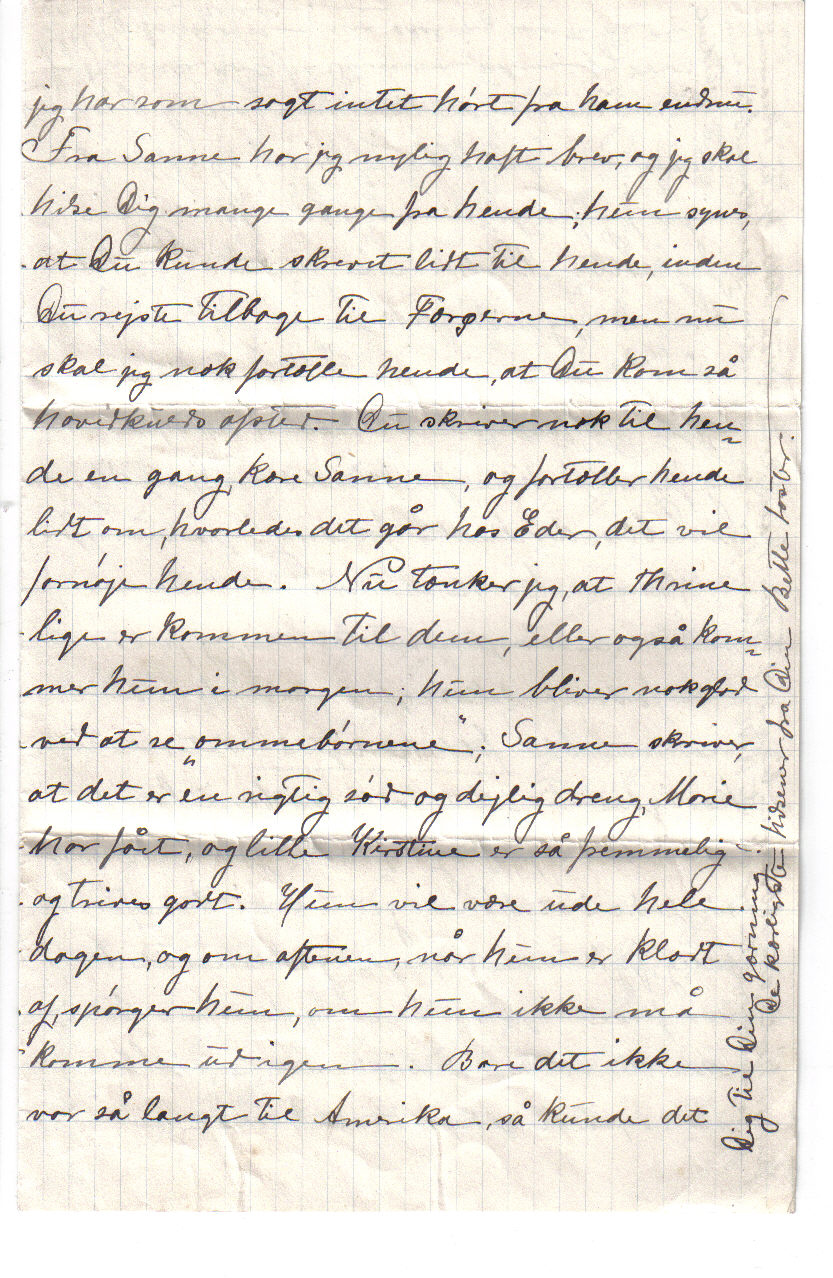 jeg har som sagt intet hørt fra ham endnu.
Fra Sanne har jeg nylig haft brev, og jeg skal
hilse Dig mange gange fra hende; hun synes,
at Du kunde skrevet lidt til hende, inden
Du rejste tilbage til Færøerne, men nu
skal jeg nok fortælle hende, at Du kom så
hovedkulds afsted. Du skriver nok til hen=
de en gang, kære Sanne, og fortæller hende
lidt om, hvorledes det går hos Eder, det vil
fornøje hende. Nu tænker jeg, at Thrine
lige er kommen til dem, eller også kom=
mer hun i morgen; hun bliver nok glad
ved at se „ommebørnene“; Sanne skriver,
at det er en rigtig sød og dejlig dreng, Marie
har fået, og lille Kirstine er så fremmelig
og trives godt. Hun vil være ude hele
dagen, og om aftenen, når hun er klædt
af, spørger hun, om hun ikke må
komme ud igen. Bare det ikke
var så langt til Amerika, så kunde det
Dig til Din gærning
De kærligste hilsener fra Din Bette Søster.